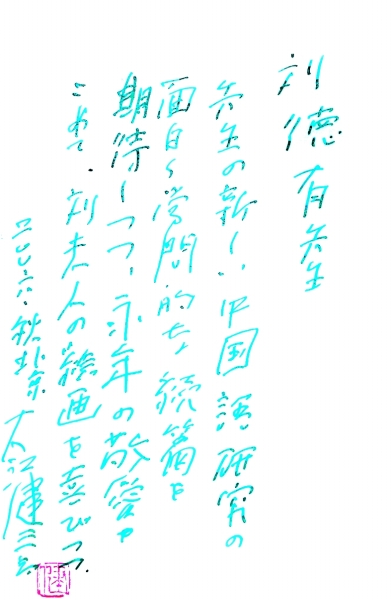 刘德有先生
先生の新しい中国語研究の
面白く学問的な続篇を
期待しつつ、永年の敬愛を
こめて、刘夫人の絵画を喜びつつ.
二〇〇六・秋北京 大江健三郎